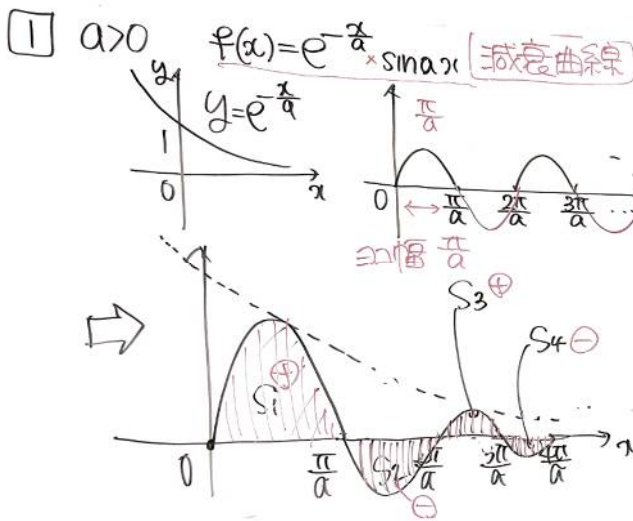 1 a>0 f(x)=e^{-x/a}×sin ax 減衰曲線
y
y=e^{-x/a}
1
0 x
π/a
0 π/a 2π/a 3π/a …
コブ幅 π/a
S3 ⊕
S4 ⊖
S1 ⊕
S2 ⊖
0 π/a 2π/a 3π/a 4π/a x